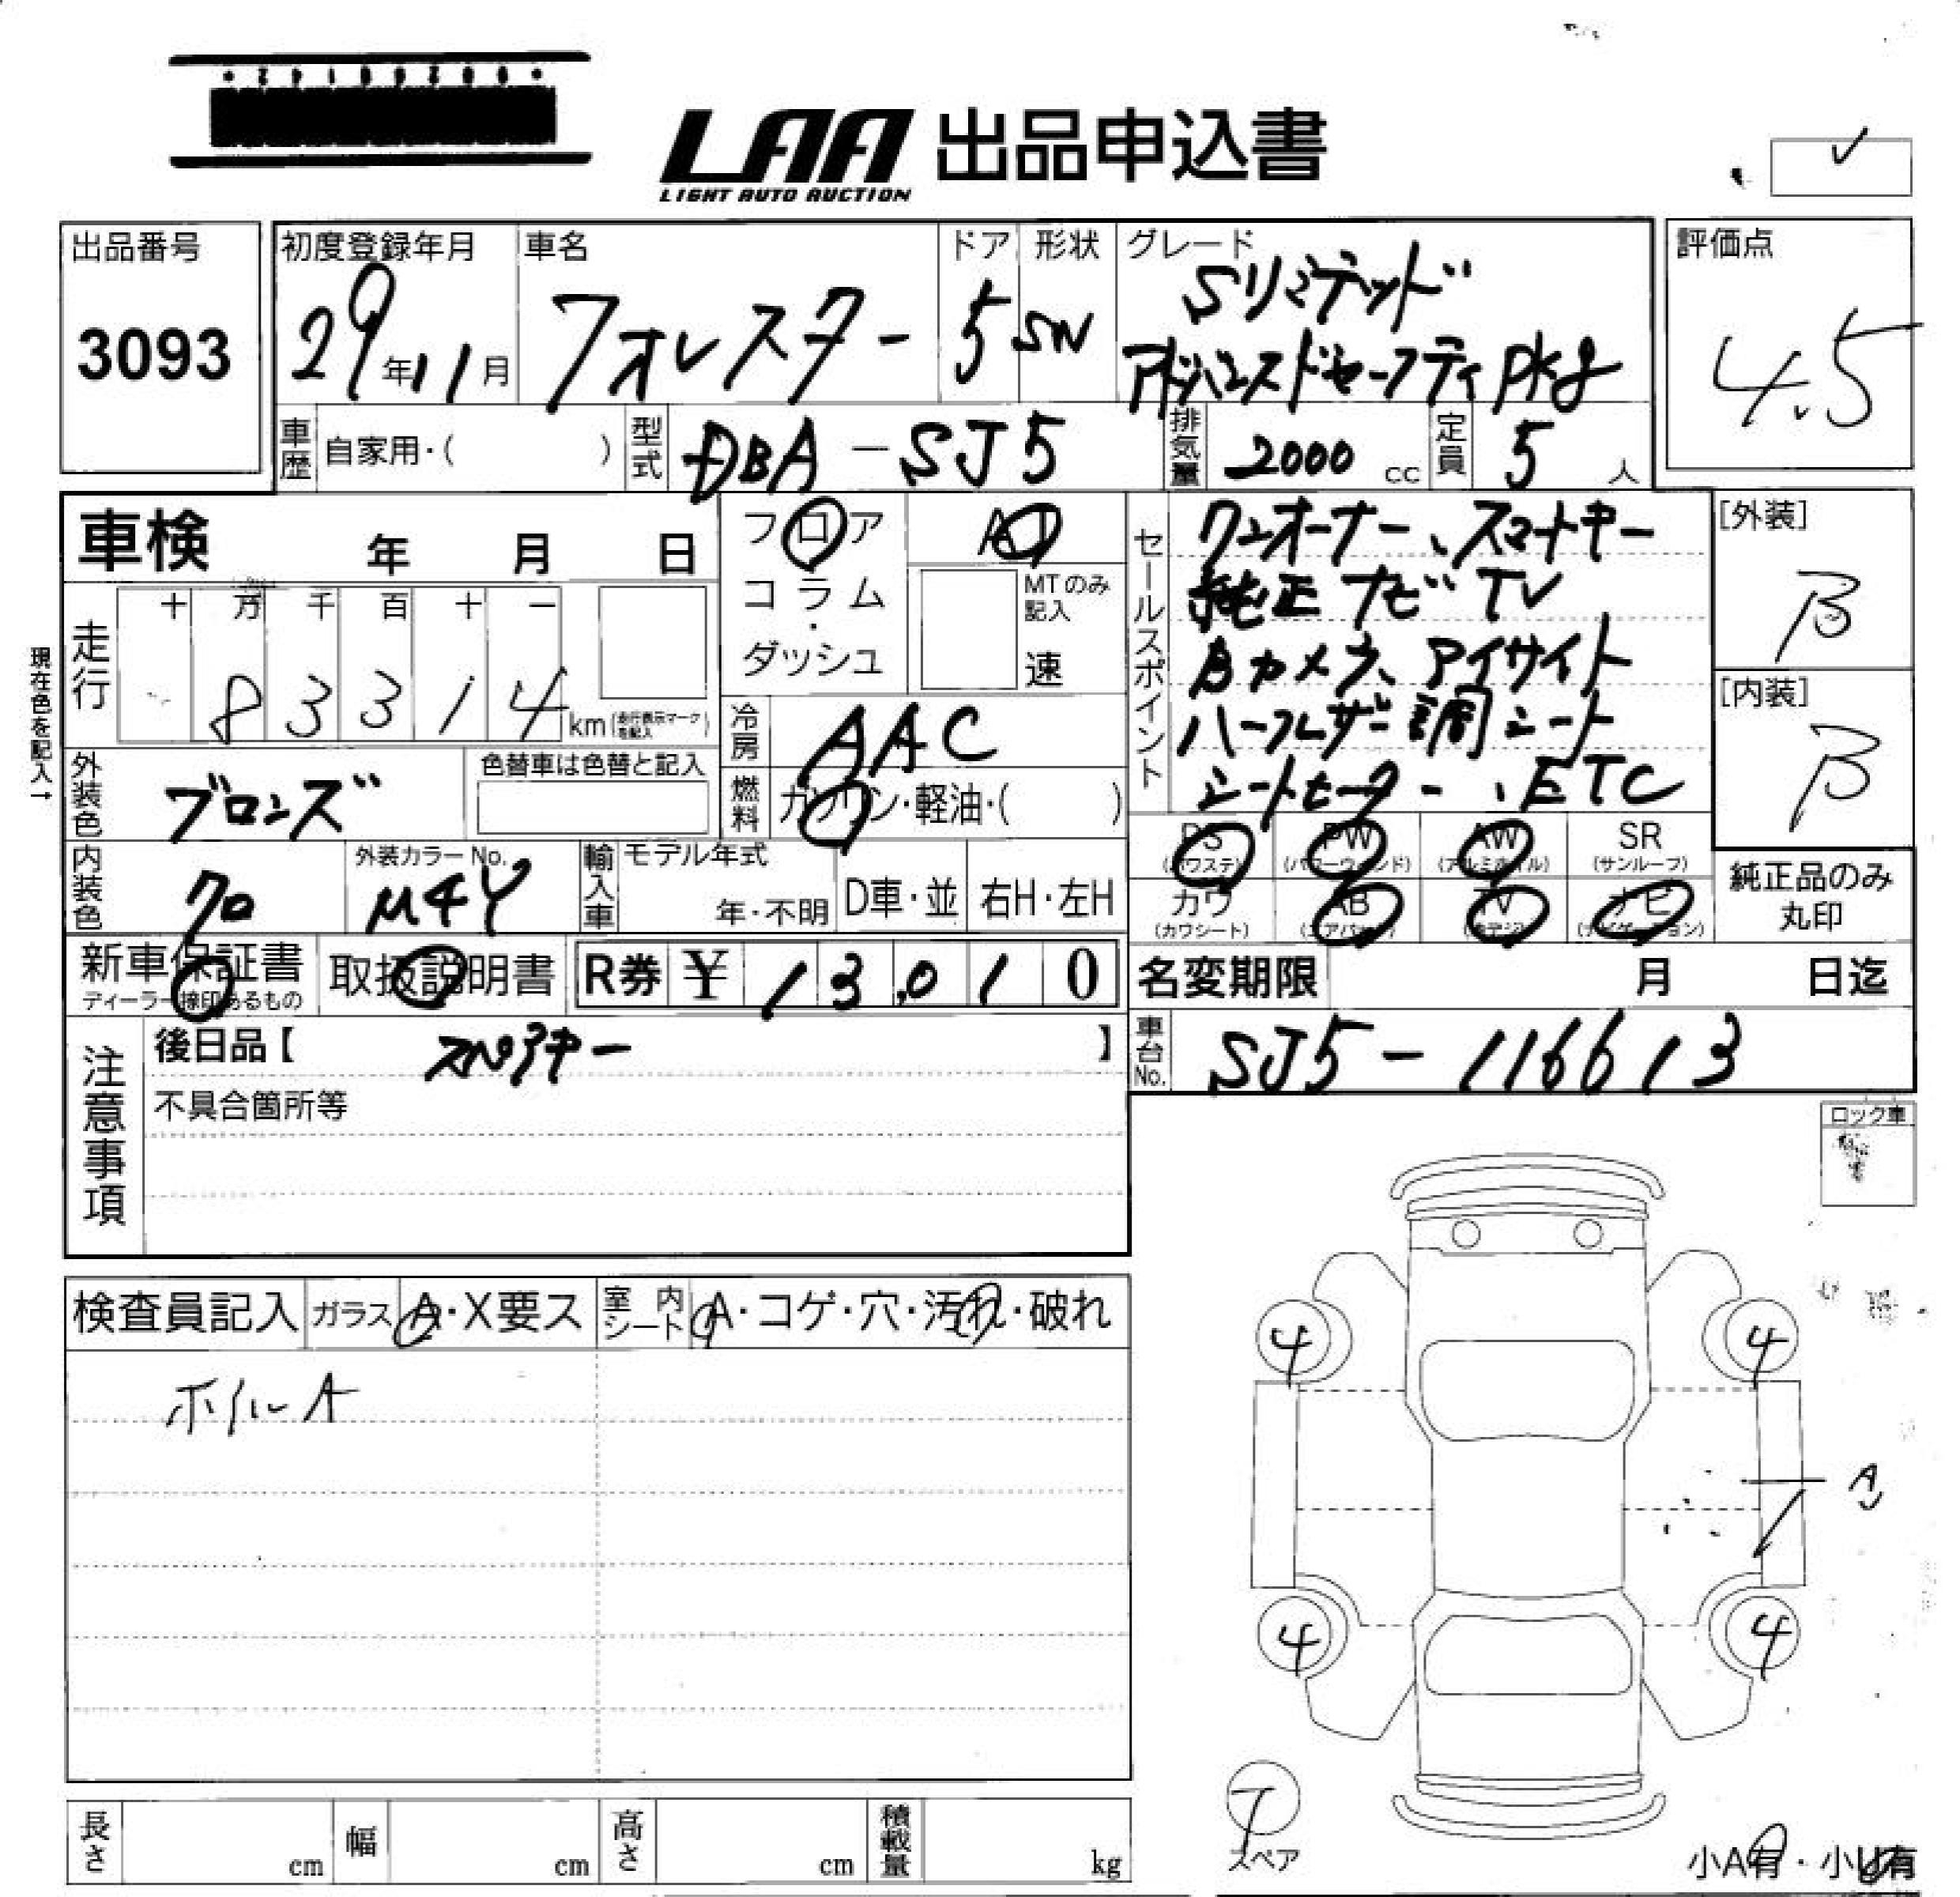 LAA 出品申込書
LIGHT AUTO AUCTION
✓
出品番号
3093
初度登録年月
29年11月
車名
フォレスター
ドア
5
形状
SN
グレード
Sリミテッド
アドバンスドセーフティpkg
評価点
4.5
車歴 自家用・( )
型式 DBA-SJ5
排気量 2000 cc
定員 5 人
車検 年 月 日
フロア
コラム・ダッシュ
AT
MTのみ記入
速
セールスポイント
ワンオーナー、スマートキー
純正ナビTV
Bカメラ、アイサイト
ハーフレザー調シート
シートヒーター、ETC
[外装]
B
[内装]
B
現在色を記入→
走行
十 万 千 百 十 一
8 3 3 1 4 km (走行表示マークを記入)
冷房 AAC
燃料 ガソリン・軽油・( )
外装色 ブロンズ
色替車は色替と記入
内装色 クロ
外装カラーNo.
M4Y
輸入車
モデル年式
年・不明
D車・並
右H・左H
PS (パワステ)
PW (パワーウィンド)
AW (アルミホイル)
SR (サンルーフ)
カワ (カワシート)
AB (エアバッグ)
TV
ナビ (ナビゲーション)
純正品のみ
丸印
新車保証書
ディーラー捺印あるもの
取扱説明書
R券 ¥ 13,010
名変期限 月 日迄
注意事項
後日品【 スペアキー 】
不具合箇所等
車台No. SJ5-116613
ロック車
検査員記入
ガラス A・X要ス
室内シート A・コゲ・穴・汚れ・破れ
ホイルA
4 4
A
4 4
T
スペア
長さ cm
幅 cm
高さ cm
積載量 kg
小A有・小U有